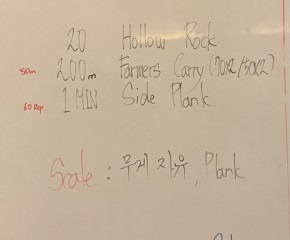 20 Hollow Rock
50m 200m Farmers Carry (70x2/50x2)
60 Rep 1 MIN Side Plank
Scale : 무게 자유, Plank